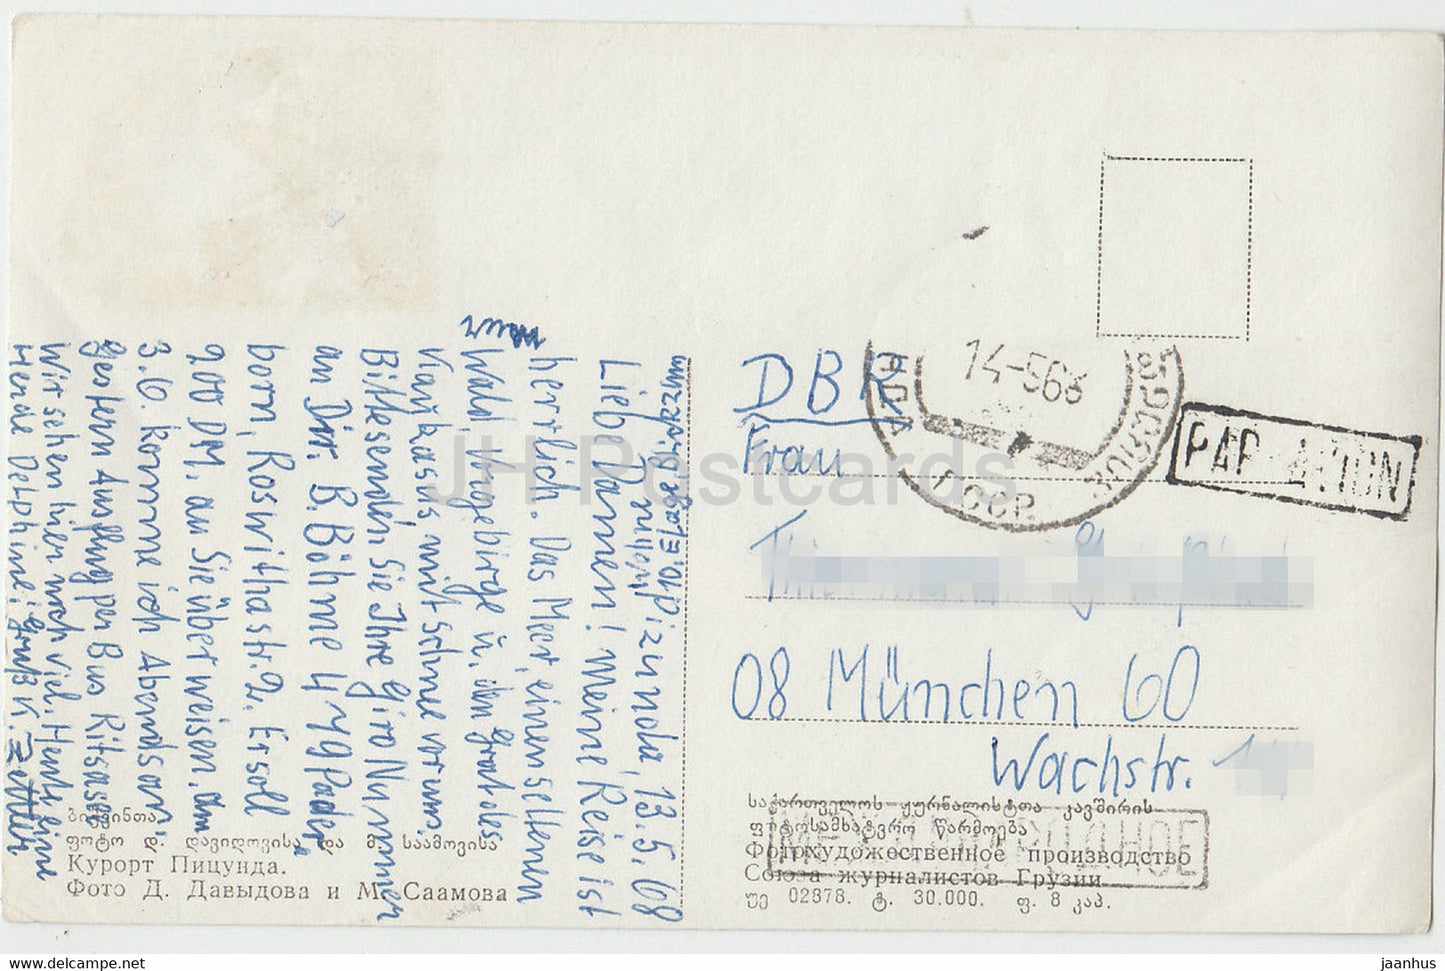 Pizunda, 13.5.68
Liebe Damen! Meine Reise ist
herrlich. Das Meer, einen seltenen
Wald, Vorgebirge u. den
Kaukasus mit Schnee vor mir.
Bitte senden Sie Ihre Giro Nummer
an Dir. B. Böhme 479 Pader
born, Roswithastr. 2. Er soll
200 DM, an Sie überweisen. Am
3.6. komme ich Abends an,
gestern Ausflug per Bus Ritsasee
Wir sehen hier noch viel. Heute eine
Herde Delphine! Gruß K.
ბიჭვინთა.
ფოტო დ. დავიდოვისა და მ. საამოვისა
Курорт Пицунда.
Фото Д. Давыдова и М. Саамова
14-568
ГССР
PAR AVION
DBR
Frau
08 München 60
Wachstr.
საქართველოს ჟურნალისტთა კავშირის
ფოტოსამხატვრო წარმოება
Фотохудожественное производство
Союза журналистов Грузии
უე 02878. ტ. 30.000. ფ. 8 კაპ.
JH Postcards
www.delcampe.net
jaanhus